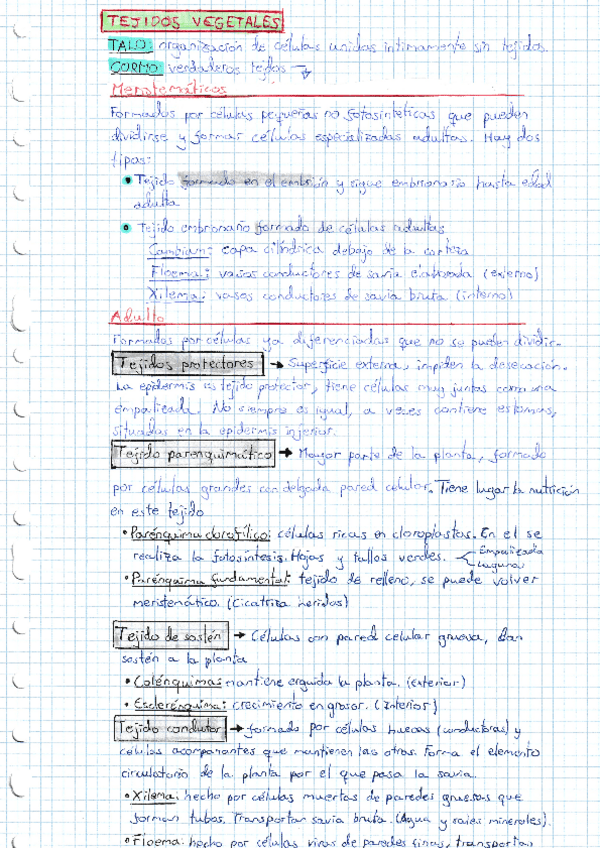 TEJIDOS VEGETALES
TALO: organización de células unidas intimamente sin tejidos.
CORMO: verdaderos tejidos
Meristemáticos
Formados por células pequeñas no fotosintéticas que pueden
dividirse y formar células especializadas adultas. Hay dos
tipos:
• Tejido formado en el embrión y sigue embrionario hasta edad
adulta
• Tejido embrionario formado de células adultas
Cambium: capa cilíndrica debajo de la corteza
Floema: vasos conductores de savia elaborada (externo)
Xilema: vasos conductores de savia bruta (interno)
Adulto
Formados por células ya diferenciadas que no se pueden dividir.
Tejidos protectores → Superficie externa, impiden la desecación.
La epidermis es tejido protector, tiene células muy juntas como una
empalizada. No siempre es igual, a veces contiene estomas,
situadas en la epidermis inferior.
Tejido parenquimático → Mayor parte de la planta, formado
por células grandes con delgada pared celular. Tiene lugar la nutrición
en este tejido
• Parénquima clorofílico: células ricas en cloroplastos. En el se
realiza la fotosíntesis. Hojas y tallos verdes. Empalizada
Laguna
• Parénquima fundamental: tejido de relleno, se puede volver
meristemático. (Cicatriza heridas)
Tejido de sostén → Células con pared celular gruesa, dan
sostén a la planta
• Colénquima: mantiene erguida la planta. (exterior)
• Esclerénquima: crecimiento en grosor. (Interior)
Tejido conductor → formado por células huecas (conductoras) y
células acompañantes que mantienen las otras. Forma el elemento
circulatorio de la planta por el que pasa la savia.
• Xilema: hecho por células muertas de paredes gruesas que
forman tubos. Transportan savia bruta. (Agua y sales minerales).
• Floema: hecho por células vivas de paredes finas, transportan